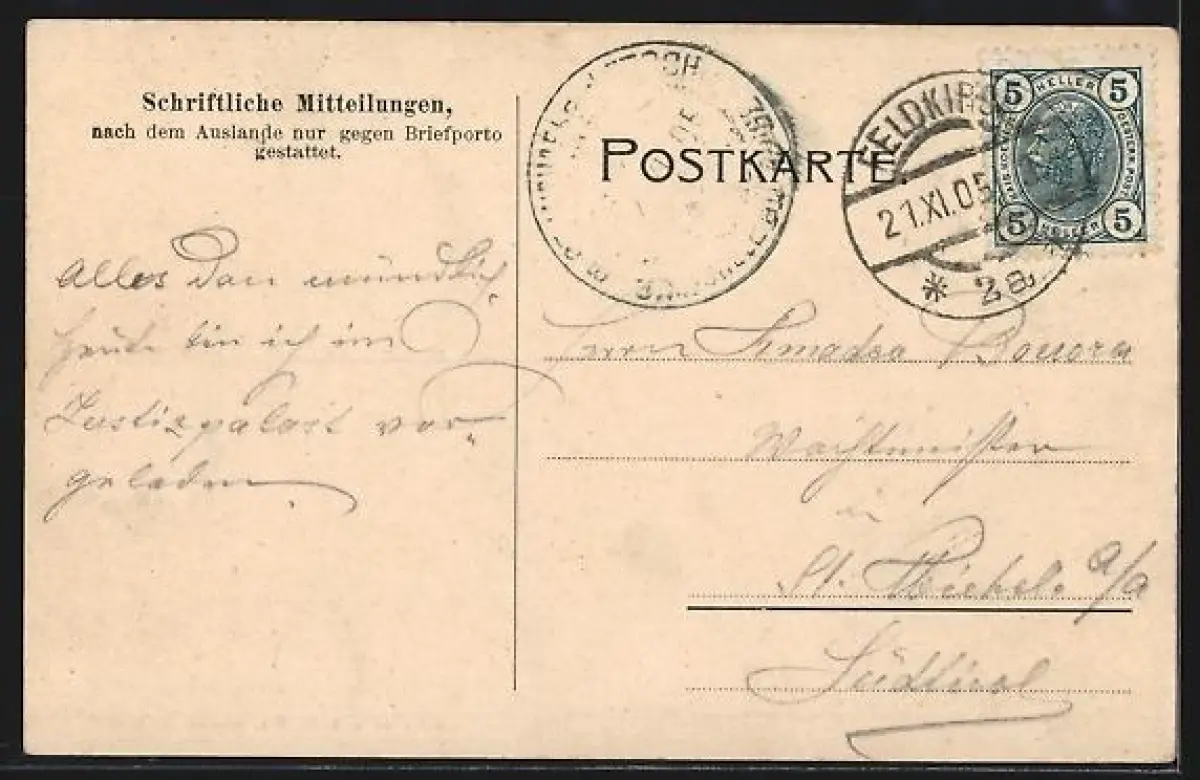 Schriftliche Mitteilungen,
nach dem Auslande nur gegen Briefporto
gestattet.
Alles Dan mündlich
heute bin ich im
Justizpalast vor-
geladen.
POSTKARTE.
FELDKIRCH
21.XI.05
* 2a
5 HELLER 5
5 HELLER 5
Herrn Amadeo
Wachtmeister
in
St. Michele a/a
Südtirol